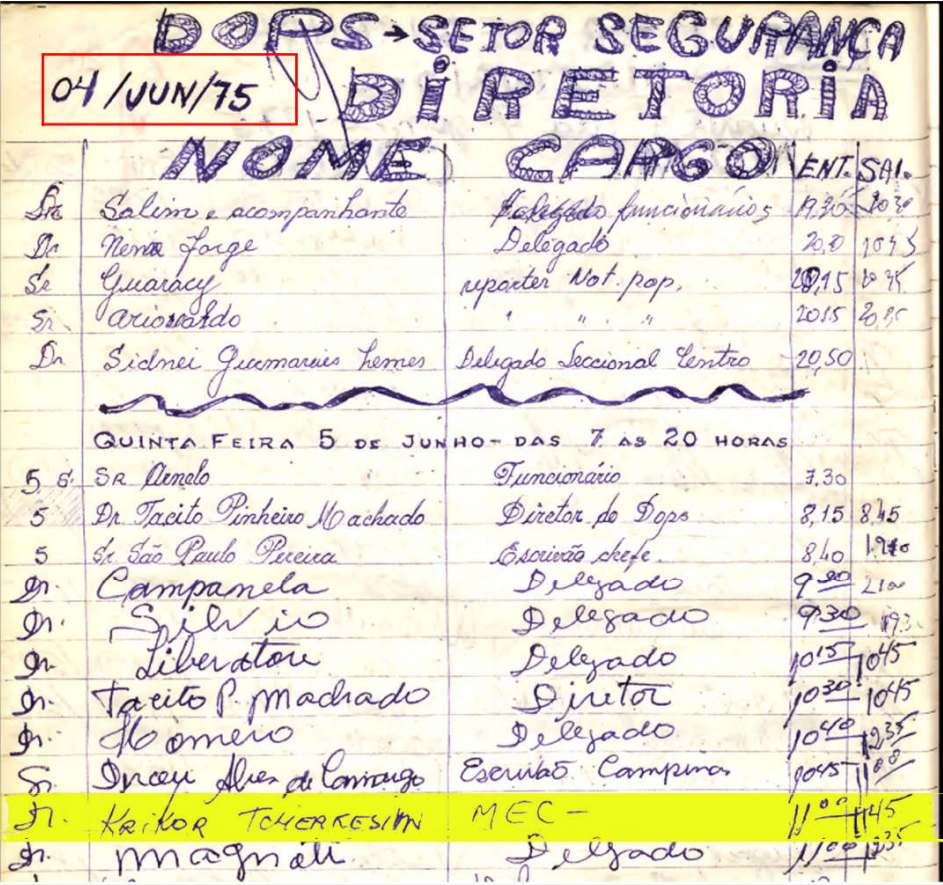 DOPS → SETOR SEGURANÇA
04/JUN/75 DIRETORIA
NOME CARGO ENT. SAI.
Salim e acompanhante funcionários 19,30 20 30
Dr Nena Jorge Delegado 20,0 2045
Sr Guaracy reporter Not. pop. 20,15 20 35
Sr Arioswaldo " " " 2015 20,35
Dr Sidnei Guimarães Lemes Delegado Seccional Centro 20,50
QUINTA FEIRA 5 DE JUNHO - DAS 7 AS 20 HORAS
5 S. SR Arnelo Funcionário 7.30
5 Dr. Tacito Pinheiro Machado Diretor do Dops 8,15 8,45
5 Sr. São Paulo Pereira Escrivão chefe. 8,40
Dr. Campanela Delegado 9 00 21 00
Dr. Silvio Delegado 9 30 193
Dr. Liberatore Delegado 10 15 10 45
Dr. Tacito P. Machado Diretor 10 30 10 45
Dr. Homero Delegado 10 40 12 35
Sr Dirceu Alves de Camargo Escrivão Campinas 10 45 11 00
Dr. KRIKOR TCHERKESIAN MEC - 11 00 11 45
Dr. Magnoti Delegado 11 00 12 35